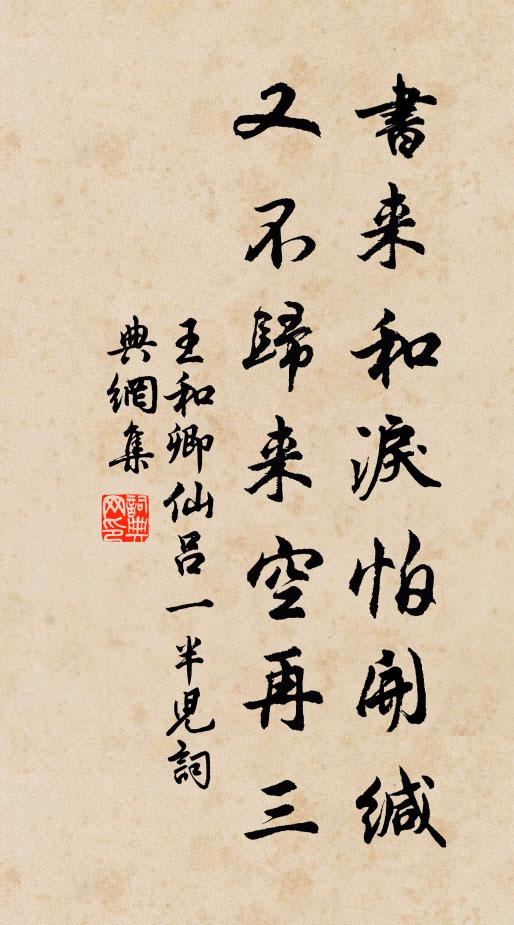 書来和淚怕開緘
又不歸来空再三
王和卿仙呂一半児詞
典網集
詞典網印